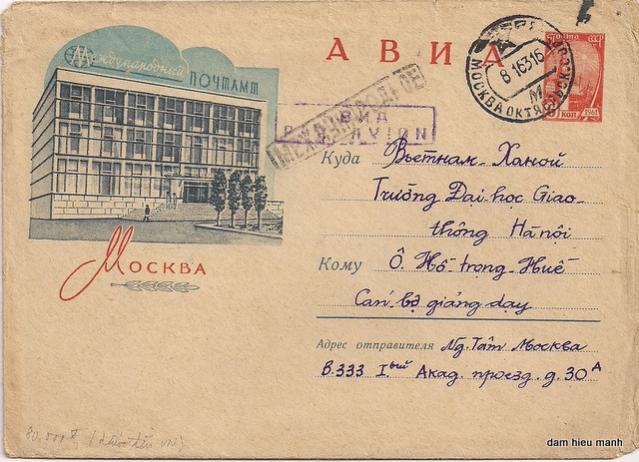 Международный
ПОЧТАМТ
Москва
АВИА
ПОЧТА СССР
1961
КОП
МОСКВА ОКТЯБРЬСК.
8 1 63 16
МЕЖДУНАРОДНОЕ
АВИА
PAR AVION
Куда Вьетнам - Ханой
Trường Đại học Giao-
thông Hà nội
Кому Ô. Hồ trọng Huế
Cán bộ giảng dạy
Адрес отправителя Ng. Tâm Москва
В.333 Iый Акад. проезд. д. 30 А
80.000đ
dam hieu manh